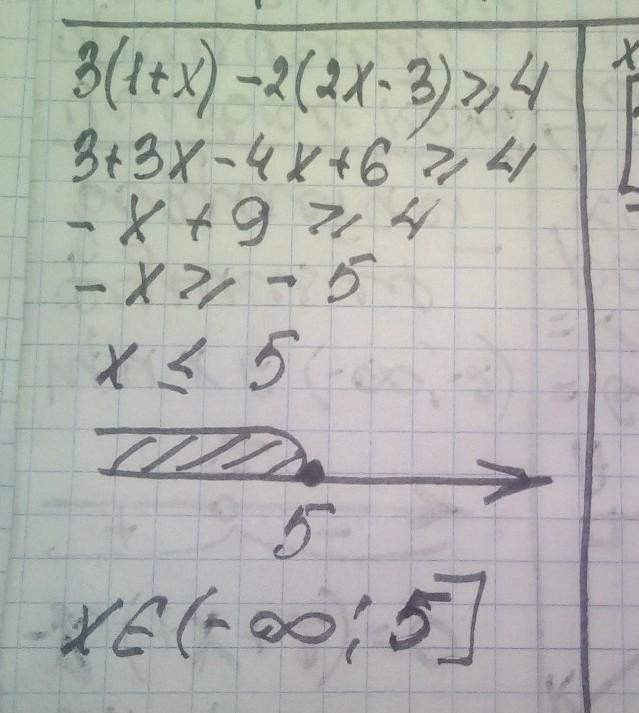 3(1+x) -2(2x-3) ⩾ 4
3+3x-4x+6 ⩾ 4
-x+9 ⩾ 4
-x ⩾ -5
x ≤ 5
5
x∈(-∞; 5]
x